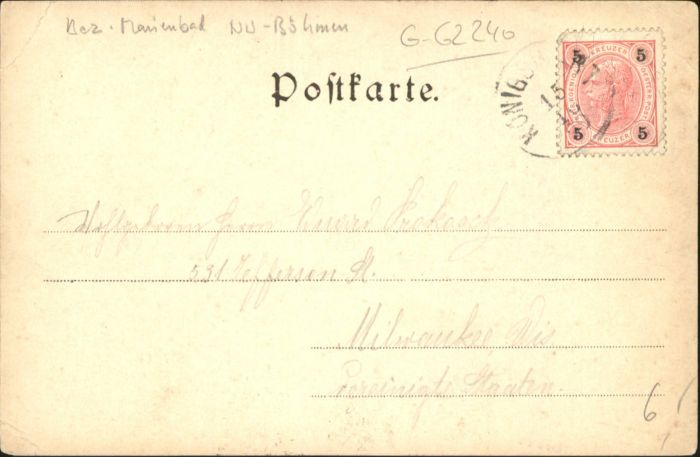 Bez. Marienbad NW-Böhmen
G-G2240
Postkarte.
5 KREUZER 5
5 KREUZER 5
KÖNIGS
15
Wohlgeboren Herrn Edward Prokosch
531 Jefferson St.
Milwaukee Wis
Vereinigte Staaten.
6